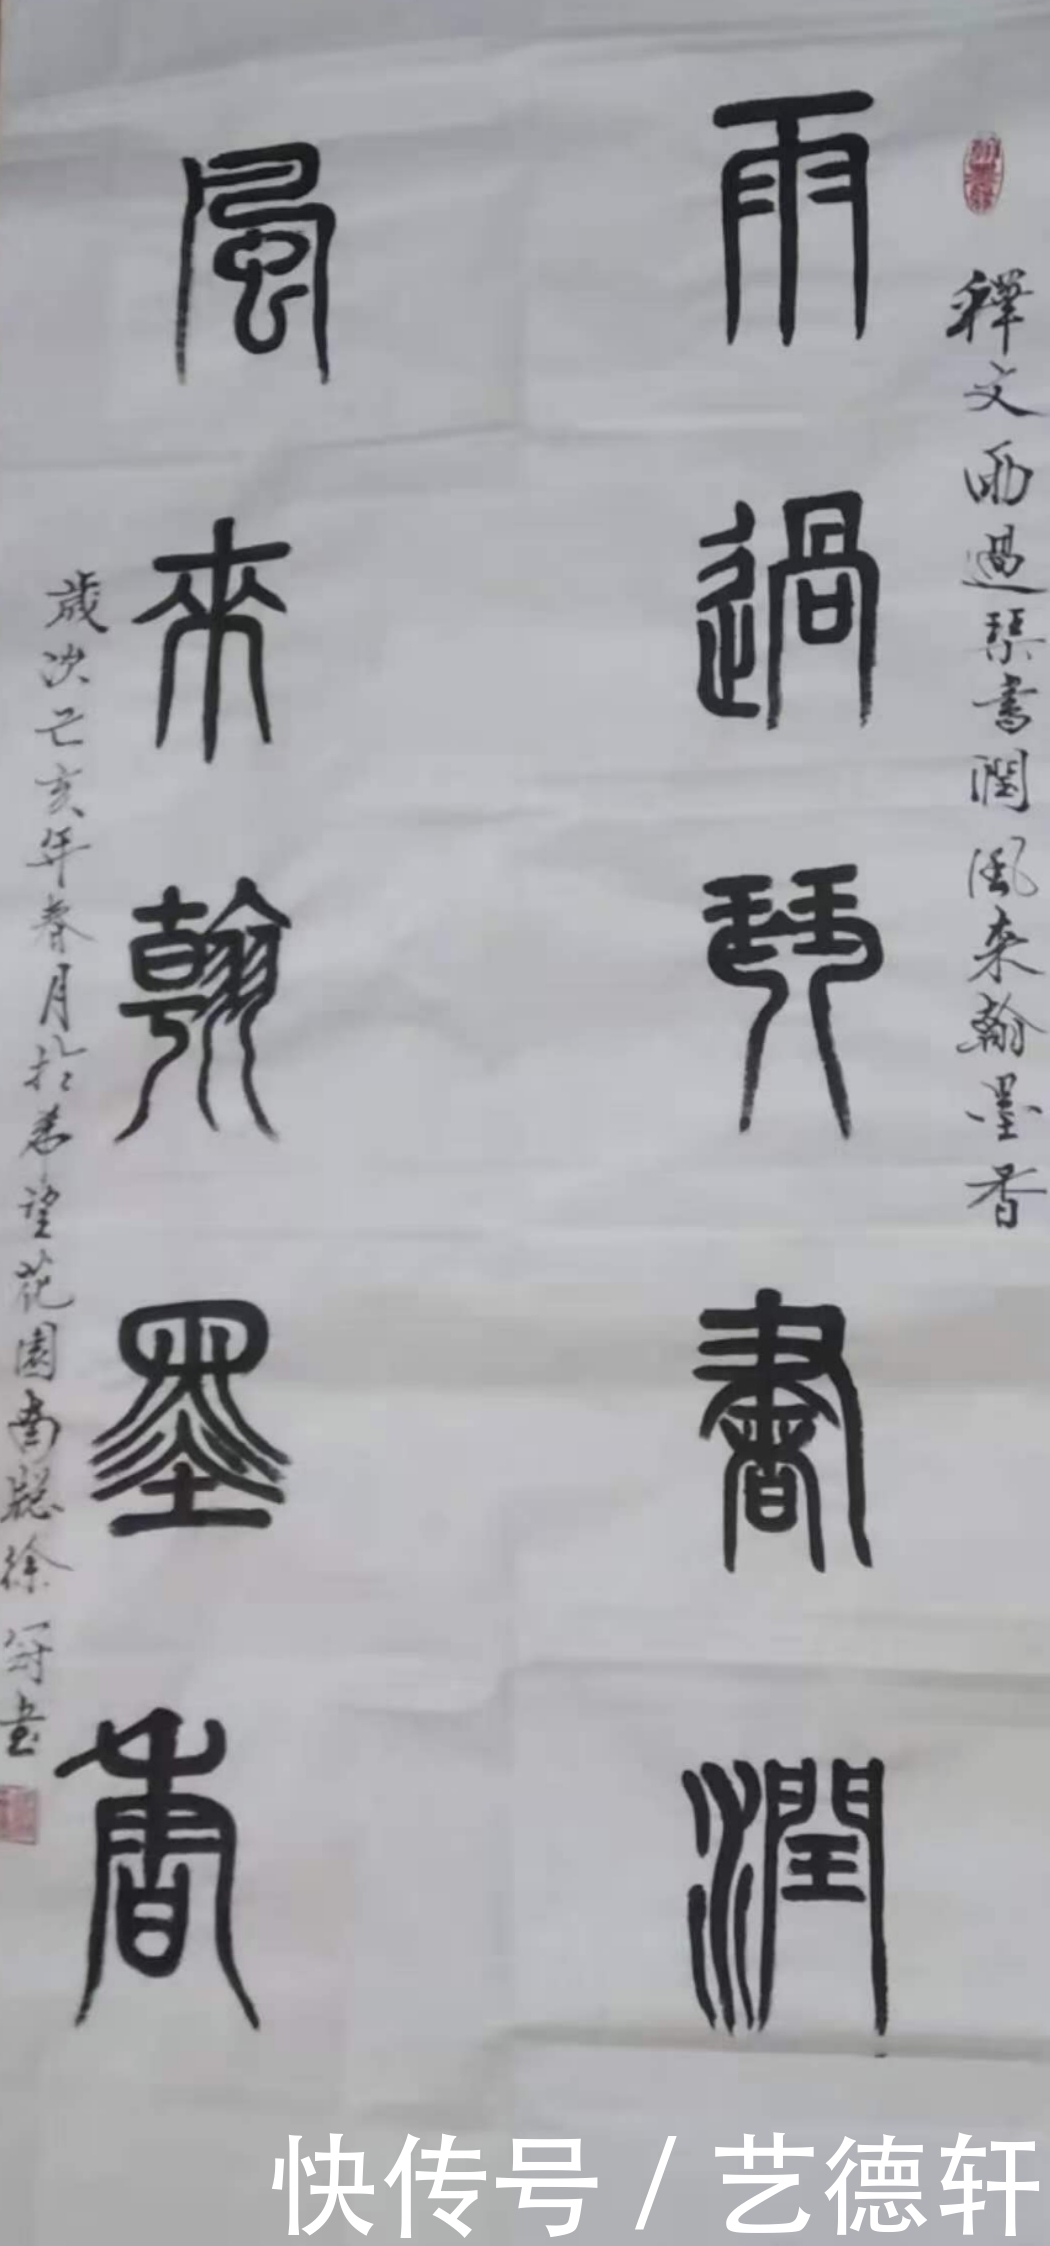 释文雨過琴書潤風来翰墨香
雨過琴書潤
風來翰墨香
歲次己亥年春月於希望花園南懇徐
书
快传号/艺德轩